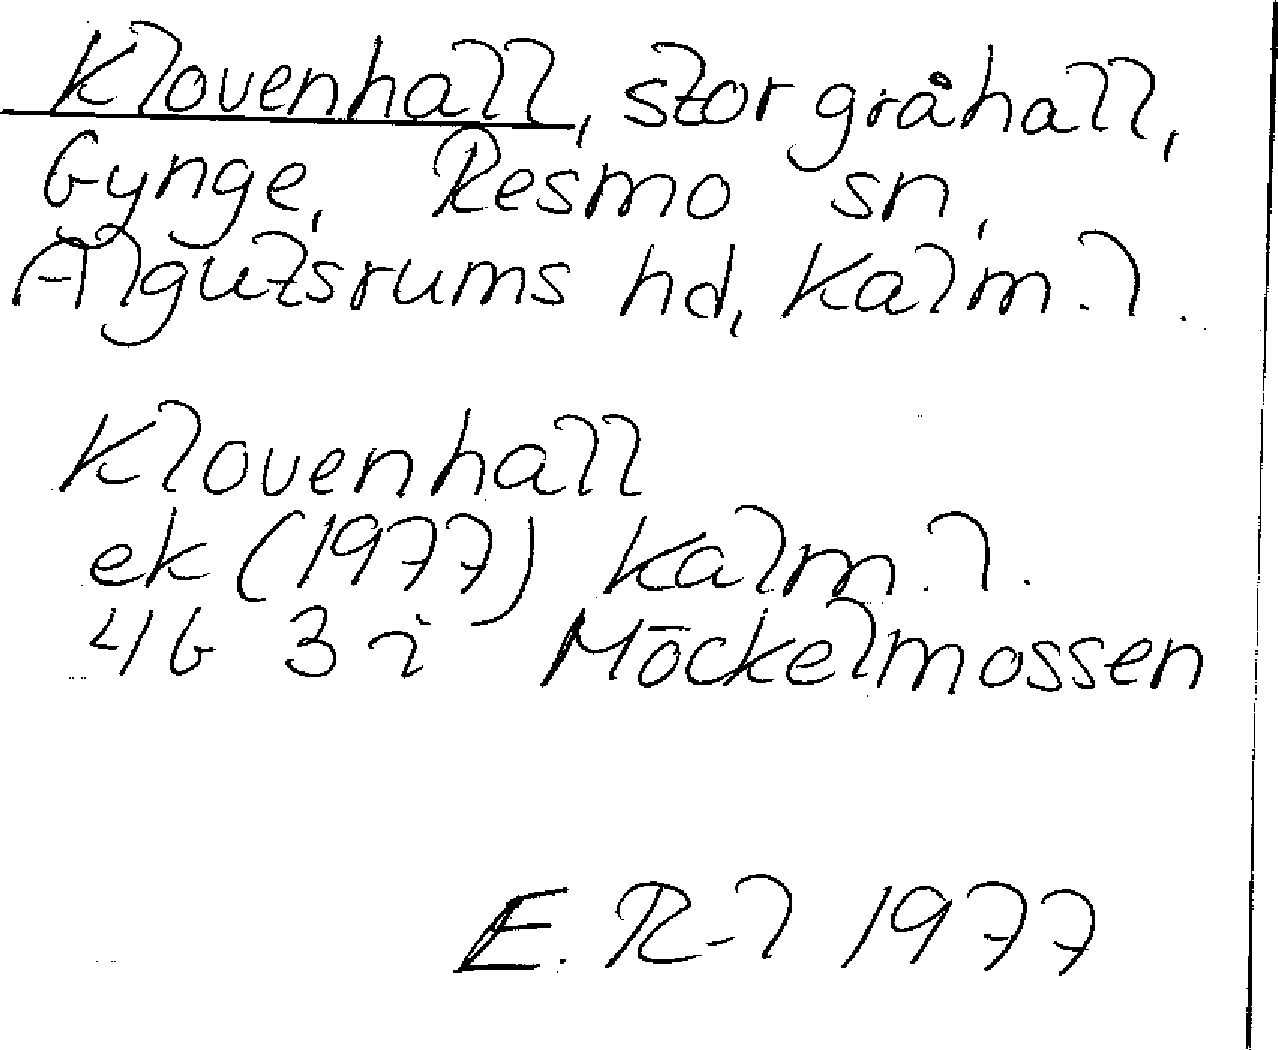 Klovenhall, stor gråhall,
Gynge, Resmo sn,
Algutsrums hd, Kalm. l.
Klovenhall
ek (1977) Kalm. l.
4G 3i Möckelmossen
E. R-l 1977